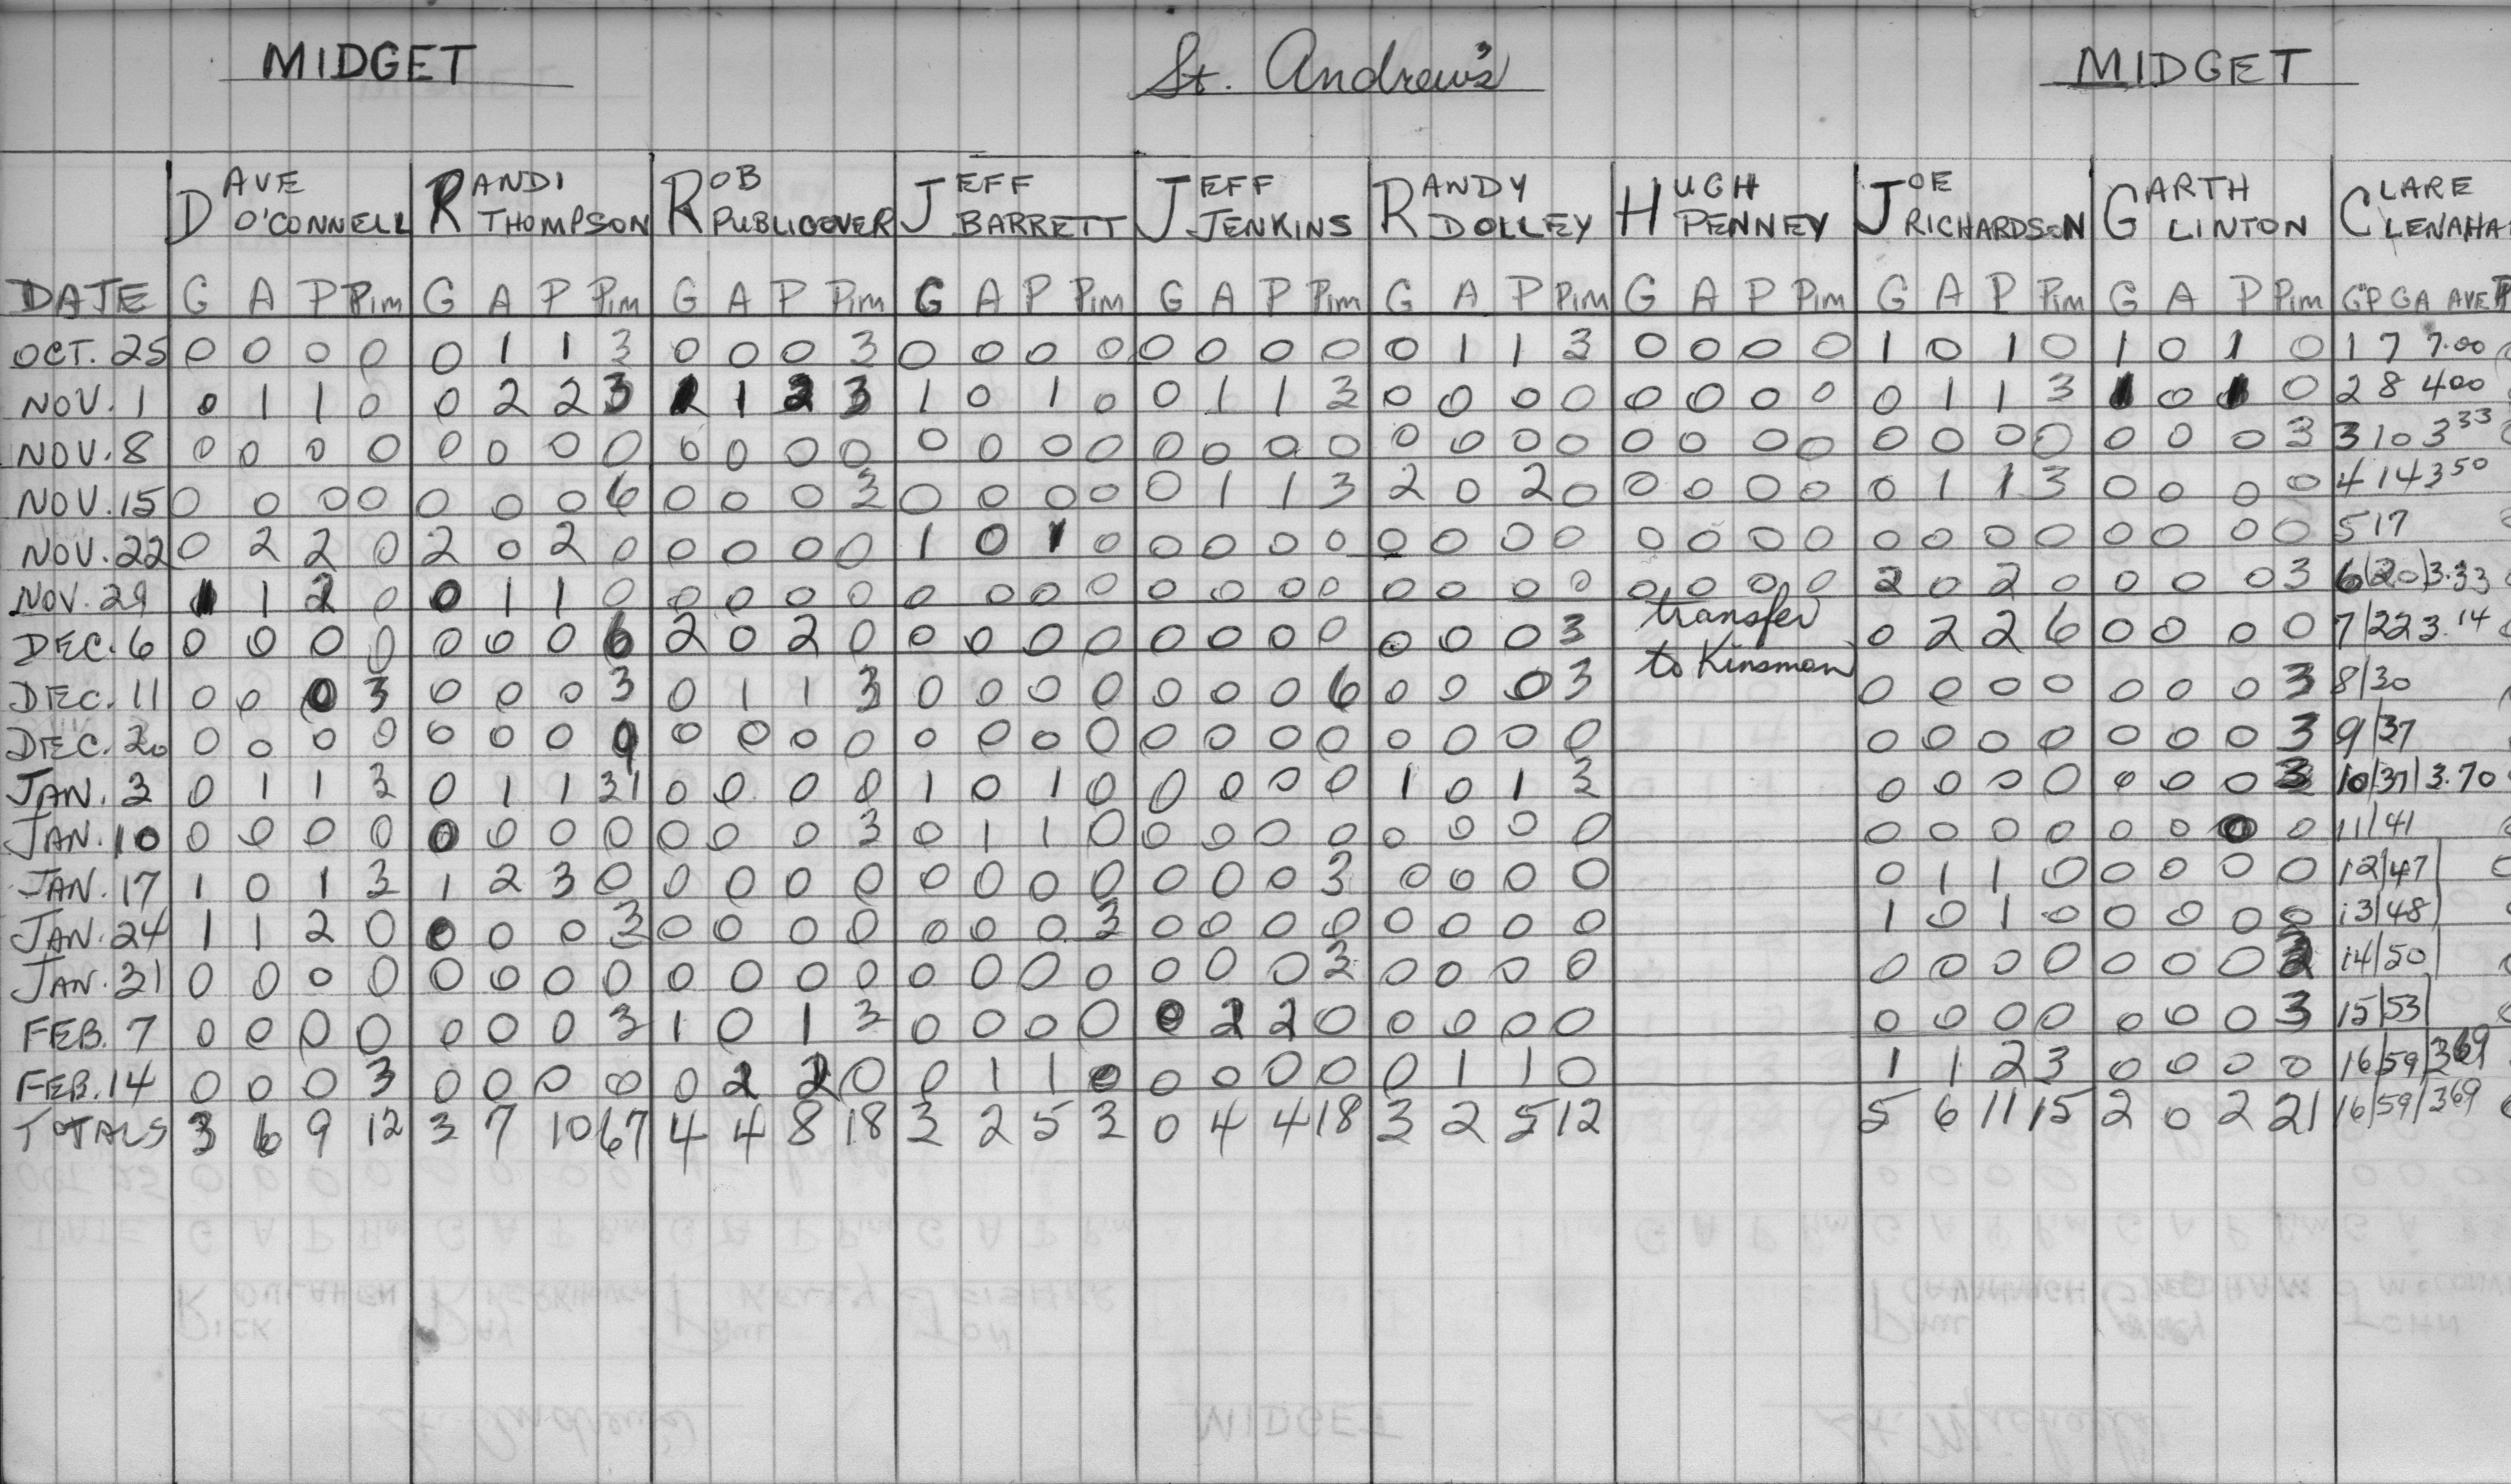 MIDGET St. Andrew's MIDGET
DAVE O'CONNELL RANDI THOMPSON ROB PUBLICOVER JEFF BARRETT JEFF JENKINS RANDY DOLLEY HUGH PENNEY JOE RICHARDSON GARTH LINTON CLARE CLENAHA
DATE G A P Pim G A P Pim G A P Pim G A P Pim G A P Pim G A P Pim G A P Pim G A P Pim G A P Pim GP GA AVE P
OCT. 25 0 0 0 0 0 1 1 3 0 0 0 3 0 0 0 0 0 0 0 0 0 1 1 3 0 0 0 0 1 0 1 0 1 0 1 0 1 7 7.00
NOV. 1 0 1 1 0 0 2 2 3 1 1 2 3 1 0 1 0 0 1 1 3 0 0 0 0 0 0 0 0 0 1 1 3 1 0 1 0 2 8 400
NOV. 8 0 0 0 0 0 0 0 0 0 0 0 0 0 0 0 0 0 0 0 0 0 0 0 0 0 0 0 0 0 0 0 0 0 0 0 3 3 10 333
NOV. 15 0 0 0 0 0 0 0 6 0 0 0 3 0 0 0 0 0 1 1 3 2 0 2 0 0 0 0 0 0 1 1 3 0 0 0 0 4 14 350
NOV. 22 0 2 2 0 2 0 2 0 0 0 0 0 1 0 1 0 0 0 0 0 0 0 0 0 0 0 0 0 0 0 0 0 0 0 0 0 5 17
NOV. 29 1 1 2 0 0 1 1 0 0 0 0 0 0 0 0 0 0 0 0 0 0 0 0 0 0 0 0 0 2 0 2 0 0 0 0 3 6/20/3.33
DEC. 6 0 0 0 0 0 0 0 6 2 0 2 0 0 0 0 0 0 0 0 0 0 0 0 3 transfer 0 2 2 6 0 0 0 0 7/22 3.14
DEC. 11 0 0 0 3 0 0 0 3 0 1 1 3 0 0 0 0 0 0 0 6 0 0 0 3 to Kinsmen 0 0 0 0 0 0 0 3 8/30
DEC. 20 0 0 0 0 0 0 0 9 0 0 0 0 0 0 0 0 0 0 0 0 0 0 0 0 0 0 0 0 0 0 0 3 9/37
JAN. 3 0 1 1 3 0 1 1 31 0 0 0 0 1 0 1 0 0 0 0 0 1 0 1 3 0 0 0 0 0 0 0 3 10/37/3.70
JAN. 10 0 0 0 0 0 0 0 0 0 0 0 3 0 1 1 0 0 0 0 0 0 0 0 0 0 0 0 0 0 0 0 0 11/41
JAN. 17 1 0 1 3 1 2 3 0 0 0 0 0 0 0 0 0 0 0 0 3 0 0 0 0 0 1 1 0 0 0 0 0 12/47
JAN. 24 1 1 2 0 0 0 0 3 0 0 0 0 0 0 0 3 0 0 0 0 0 0 0 0 1 0 1 0 0 0 0 0 13/48
JAN. 31 0 0 0 0 0 0 0 0 0 0 0 0 0 0 0 0 0 0 0 3 0 0 0 0 0 0 0 0 0 0 0 3 14/50
FEB. 7 0 0 0 0 0 0 0 3 1 0 1 3 0 0 0 0 0 2 2 0 0 0 0 0 0 0 0 0 0 0 0 3 15/53
FEB. 14 0 0 0 3 0 0 0 0 0 2 2 0 0 1 1 0 0 0 0 0 0 1 1 0 1 1 2 3 0 0 0 0 16/59/369
TOTALS 3 6 9 12 3 7 10 67 4 4 8 18 3 2 5 3 0 4 4 18 3 2 5 12 5 6 11 15 2 0 2 21 16/59/369